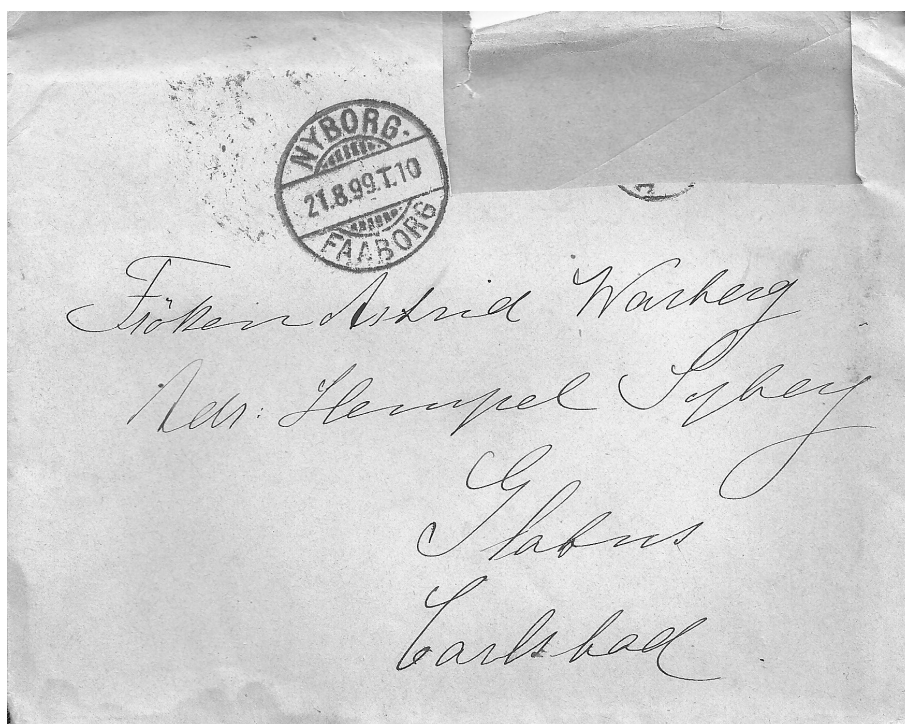 NYBORG-
21.8.99.T.10
FAABORG
Fröken Astrid Warberg
Adr: Hempel Syberg
Globus
Carlsbad.